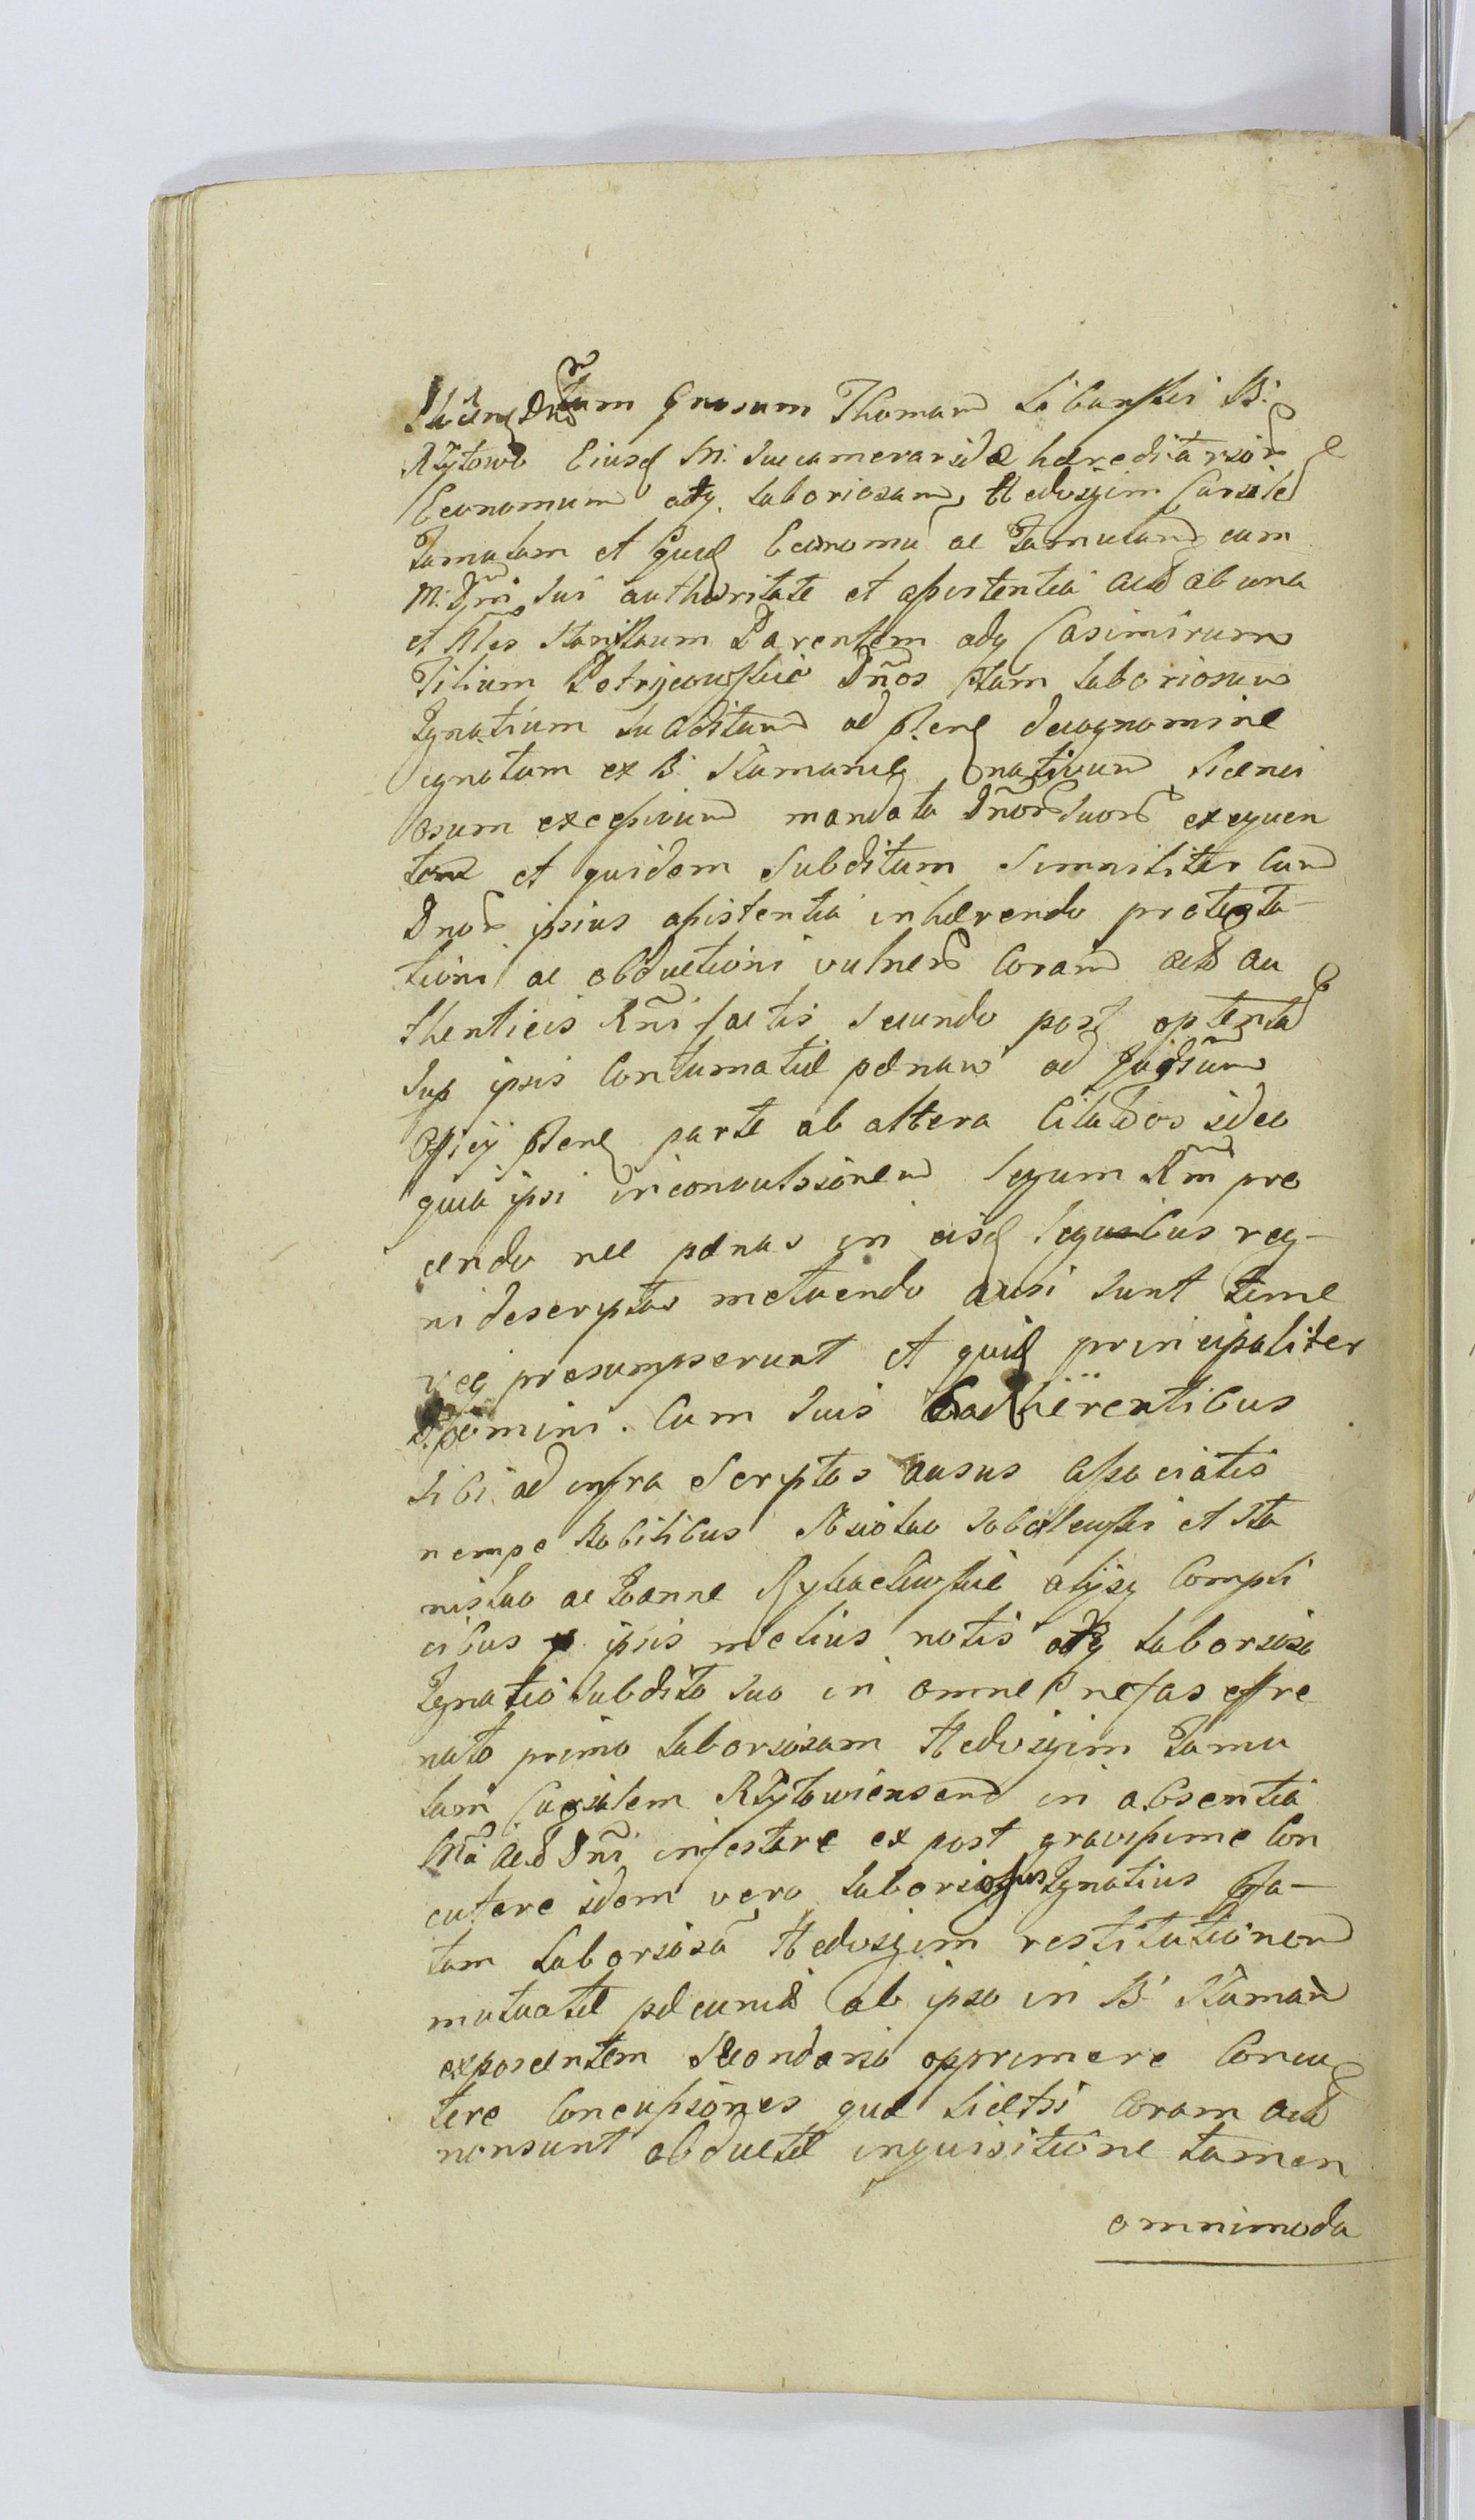 tum Gnosum Thomam Libanski B.
Rzytowo Eiusd M. Succameraridæ hæreditarior
Economum adq laboriosam Hedvigim Curiale
Famulam et quid Economu ac Famulam cum
M. Dni sui authoritate et assistentia act ab una
et Nles Stanislaum Parentem adq Casimirum
Filium Petrycowskie Dños tam laboriosum
Ignatium Subditum ad pren de cognomine
ignotum ex B. nativum licenci
osum excessivum mandata Dñor suor exequen
tem et quidem Subditum simmiliter cum
Dnor ipsius assistentia inhærendo protesta-
tioni ac obductioni vulner coram act au
thenticis Rñi factis secundo post optenta
sup ipsis contumatiæ pænam ad Judium
Officij pren parte ab altera Citatos ideo
quia ipsi in convulsionem legum Rni pro
cendo nec pænas in eisd legibus reg-
ni descryptas metuendo ausi sunt teme
req presumpserunt et quid principaliter
Domini. Cum suis adhærentibus
sibi ad infra scriptos ausus associatis
nempe Nobilibus et Sta
nislao ac Joanne alijsq Compli
cibus ipsis melius notis adq laborioso
Ignatio Subdito suo in omne nefas effre
nato primo laboriosam Hedvigim Famu
lam Curialem Rzytowiensem in absentia
Mci act Dñi infestare ex post gravissime Con
cutere idem vero laboriosus Ignatius Pfa-
tam laboriosã Hedvigim restitutionem
mutuatæ pecuniæ ab ipso in B.
exposcentem secondario opprimere Concu
tere Concussiones quæ licetsi Coram act
nonsunt obductæ inquisitione tamen
omnimoda